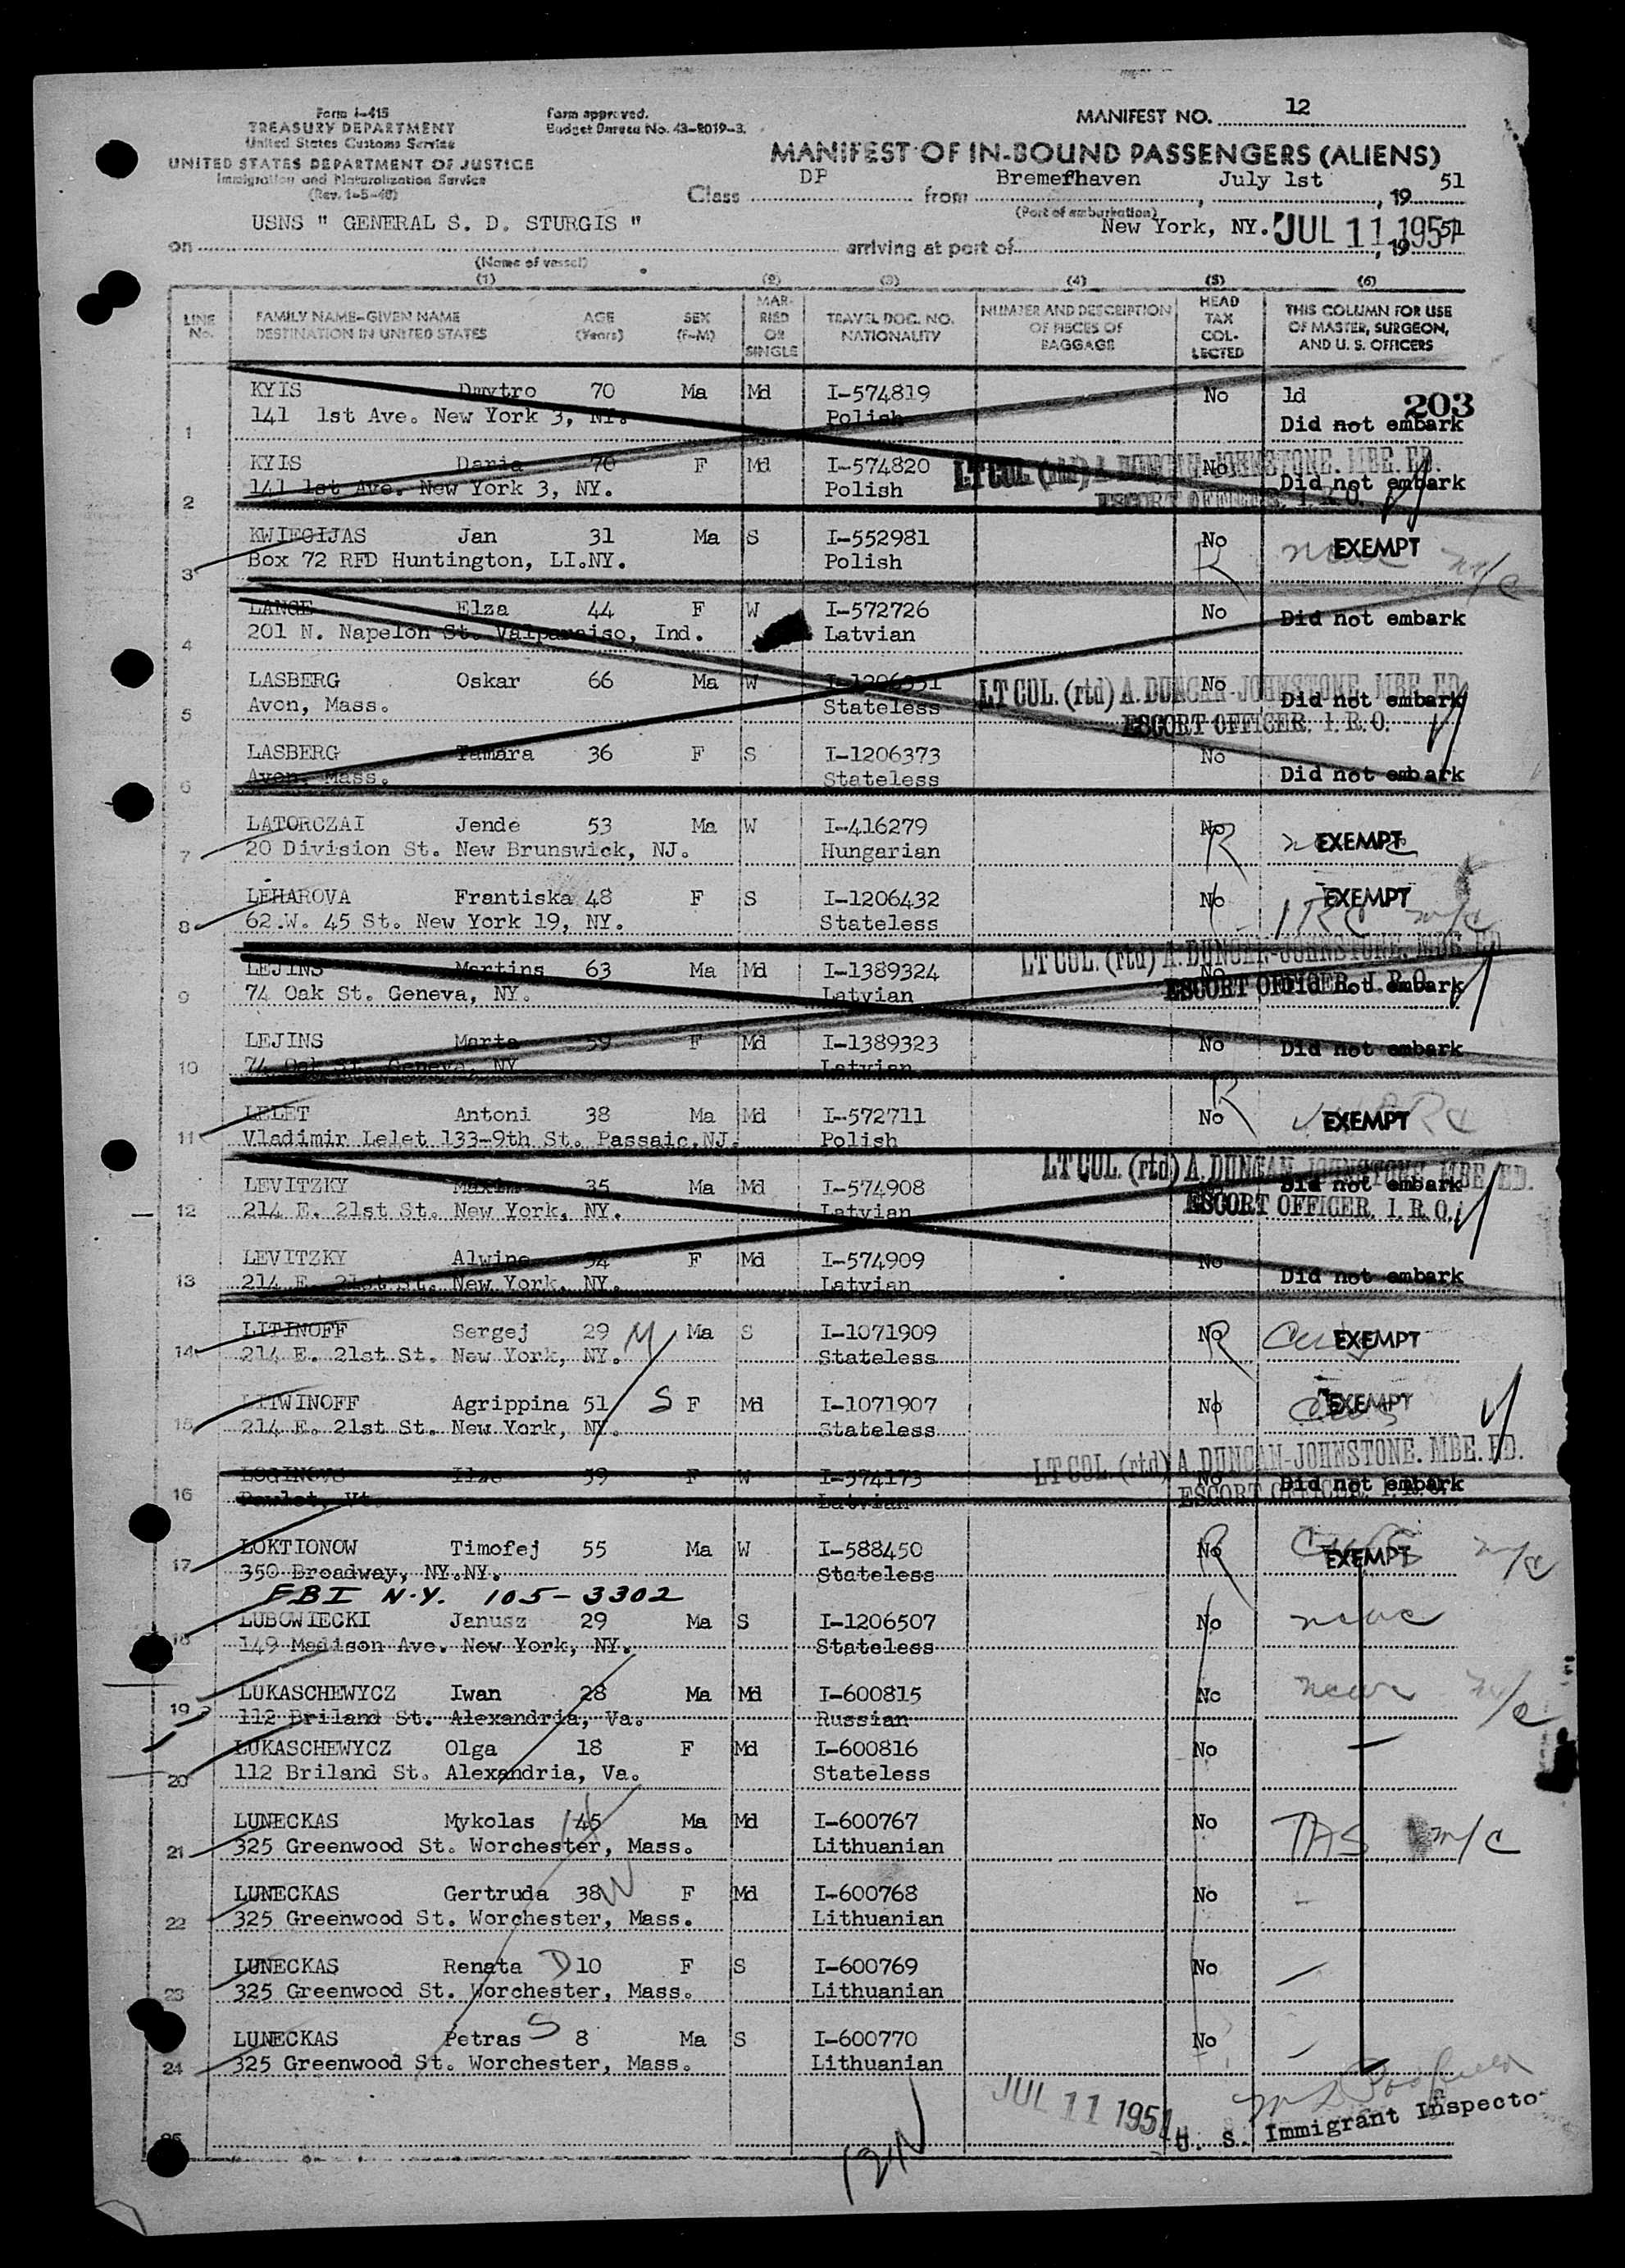 Form I-415
TREASURY DEPARTMENT
United States Customs Service
UNITED STATES DEPARTMENT OF JUSTICE
Immigration and Naturalization Service
(Rev. 1-5-48)
Form approved.
Budget Bureau No. 43-R019-3.
MANIFEST NO. 12
MANIFEST OF IN-BOUND PASSENGERS (ALIENS)
Class DP from Bremerhaven, July 1st, 19 51
(Port of embarkation)
on USNS " GENERAL S. D. STURGIS " arriving at port of New York, NY. JUL 11 1951, 19 51
(Name of vessel)
(1) (2) (3) (4) (5) (6)
LINE No. FAMILY NAME-GIVEN NAME DESTINATION IN UNITED STATES AGE (Years) SEX (F-M) MARRIED OR SINGLE TRAVEL DOC. NO. NATIONALITY NUMBER AND DESCRIPTION OF PIECES OF BAGGAGE HEAD TAX COLLECTED THIS COLUMN FOR USE OF MASTER, SURGEON, AND U. S. OFFICERS
KYIS Dmytro 70 Ma Md I-574819 No ld 203
1 141 1st Ave. New York 3, NY. Polish Did not embark
KYIS Daria 70 F Md I-574820 No LT COL. (rtd) A. DUNCAN-JOHNSTONE. MBE. ED.
2 141 1st Ave. New York 3, NY. Polish Did not embark ESCORT OFFICER. I. R. O.
KWIECIJAS Jan 31 Ma S I-552981 No R EXEMPT
3 Box 72 RFD Huntington, LI.NY. Polish m/c
LANGE Elza 44 F W I-572726 No Did not embark
4 201 N. Napelon St. Valparaiso, Ind. Latvian
LASBERG Oskar 66 Ma W No LT COL. (rtd) A. DUNCAN-JOHNSTONE. MBE. ED. Did not embark
5 Avon, Mass. Stateless ESCORT OFFICER. I. R. O.
LASBERG Tamara 36 F S I-1206373 No
6 Avon, Mass. Stateless Did not embark
LATORCZAI Jende 53 Ma W I-416279 No R EXEMPT
7 20 Division St. New Brunswick, NJ. Hungarian
LEHAROVA Frantiska 48 F S I-1206432 No EXEMPT
8 62.W. 45 St. New York 19, NY. Stateless IRC m/c
LEJINS Martins 63 Ma Md I-1389324 No LT COL. (rtd) A. DUNCAN-JOHNSTONE. MBE. ED
9 74 Oak St. Geneva, NY. Latvian ESCORT OFFICER. I. R. O. Did not embark
LEJINS Marta 59 F Md I-1389323 No Did not embark
10 74 Oak St. Geneva, NY Latvian
LELET Antoni 38 Ma Md I-572711 No R EXEMPT
11 Vladimir Lelet 133-9th St. Passaic,NJ. Polish
LEVITZKY Maxim 35 Ma Md I-574908 LT COL. (rtd) A. DUNCAN-JOHNSTONE. MBE. ED. Did not embark
12 214 E. 21st St. New York, NY. Latvian ESCORT OFFICER. I. R. O.
LEVITZKY Alwine 34 F Md I-574909 No
13 214 E. 21st St. New York, NY. Latvian Did not embark
LITINOFF Sergej 29 M Ma S I-1071909 No R EXEMPT
14 214 E. 21st St. New York, NY. Stateless
LITWINOFF Agrippina 51 S F Md I-1071907 No EXEMPT
15 214 E. 21st St. New York, NY. Stateless
LOGINOVS Ilze 59 F W I-574173 No LT COL. (rtd) A. DUNCAN-JOHNSTONE. MBE. ED. Did not embark
16 Latvian ESCORT OFFICER. I. R. O.
LOKTIONOW Timofej 55 Ma W I-588450 No R EXEMPT m/c
17 350 Broadway, NY.NY. Stateless
FBI N.Y. 105-3302
LUBOWIECKI Janusz 29 Ma S I-1206507 No ncwc
18 149 Madison Ave. New York, NY. Stateless
LUKASCHEWYCZ Iwan 28 Ma Md I-600815 No m/c
19 112 Briland St. Alexandria, Va. Russian
LUKASCHEWYCZ Olga 18 F Md I-600816 No
20 112 Briland St. Alexandria, Va. Stateless
LUNECKAS Mykolas 45 Ma Md I-600767 No TAS m/c
21 325 Greenwood St. Worchester, Mass. Lithuanian
LUNECKAS Gertruda 38 W F Md I-600768 No
22 325 Greenwood St. Worchester, Mass. Lithuanian
LUNECKAS Renata D 10 F S I-600769 No
23 325 Greenwood St. Worchester, Mass. Lithuanian
LUNECKAS Petras S 8 Ma S I-600770 No
24 325 Greenwood St. Worchester, Mass. Lithuanian
JUL 11 1951
U. S. Immigrant Inspector
25